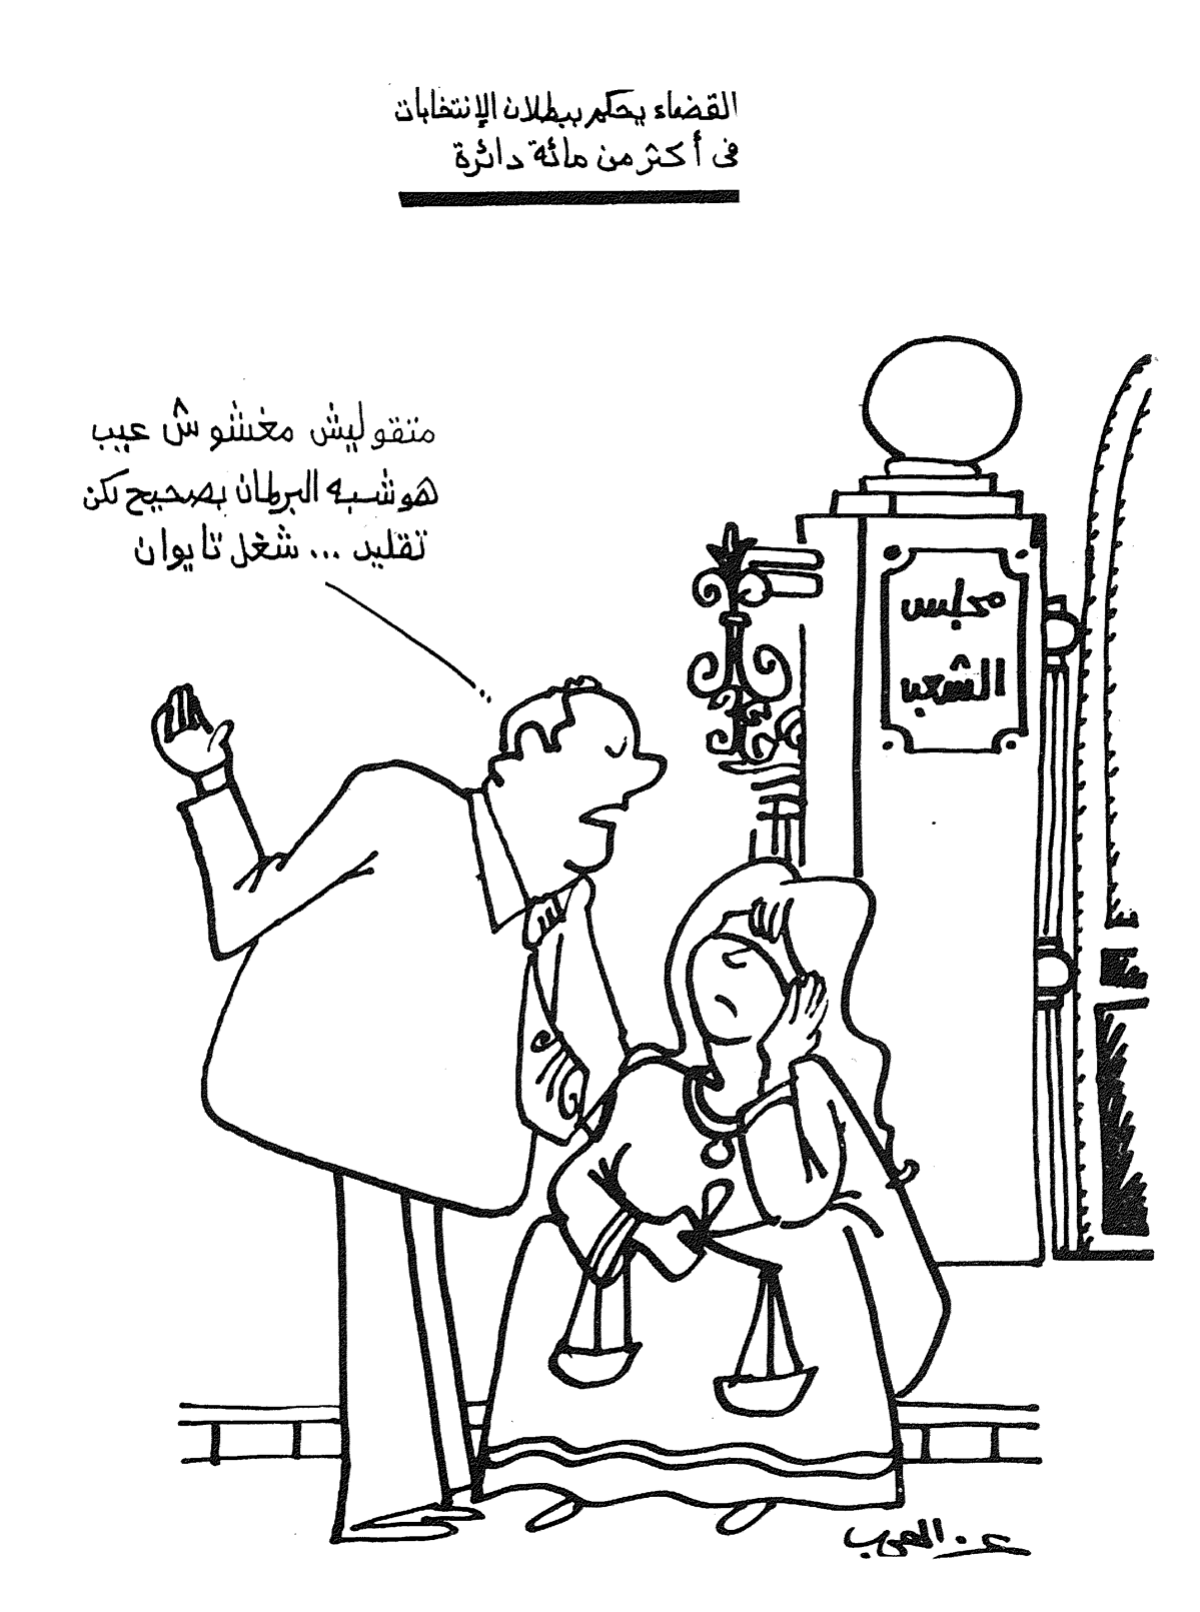 القضاء يحكم ببطلان الإنتخابات
فى أكثر من مائة دائرة
متقوليش مغشوش عيب
هو شبه البرلمان بصحيح لكن
تقليد ... شغل تايوان
مجلس
الشعب
عز العرب